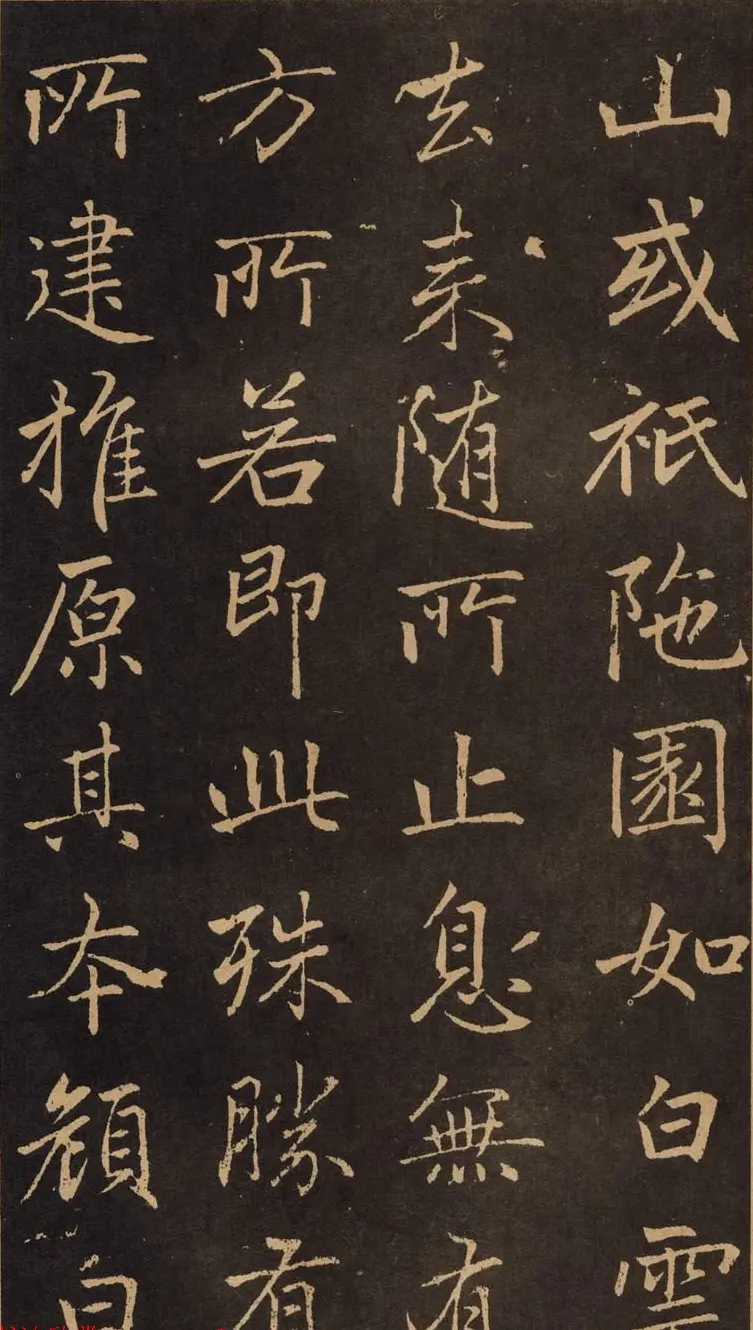 山或祇陁園如白雲
去来随所止息無有
方所若即此殊勝有
所建推原其本願